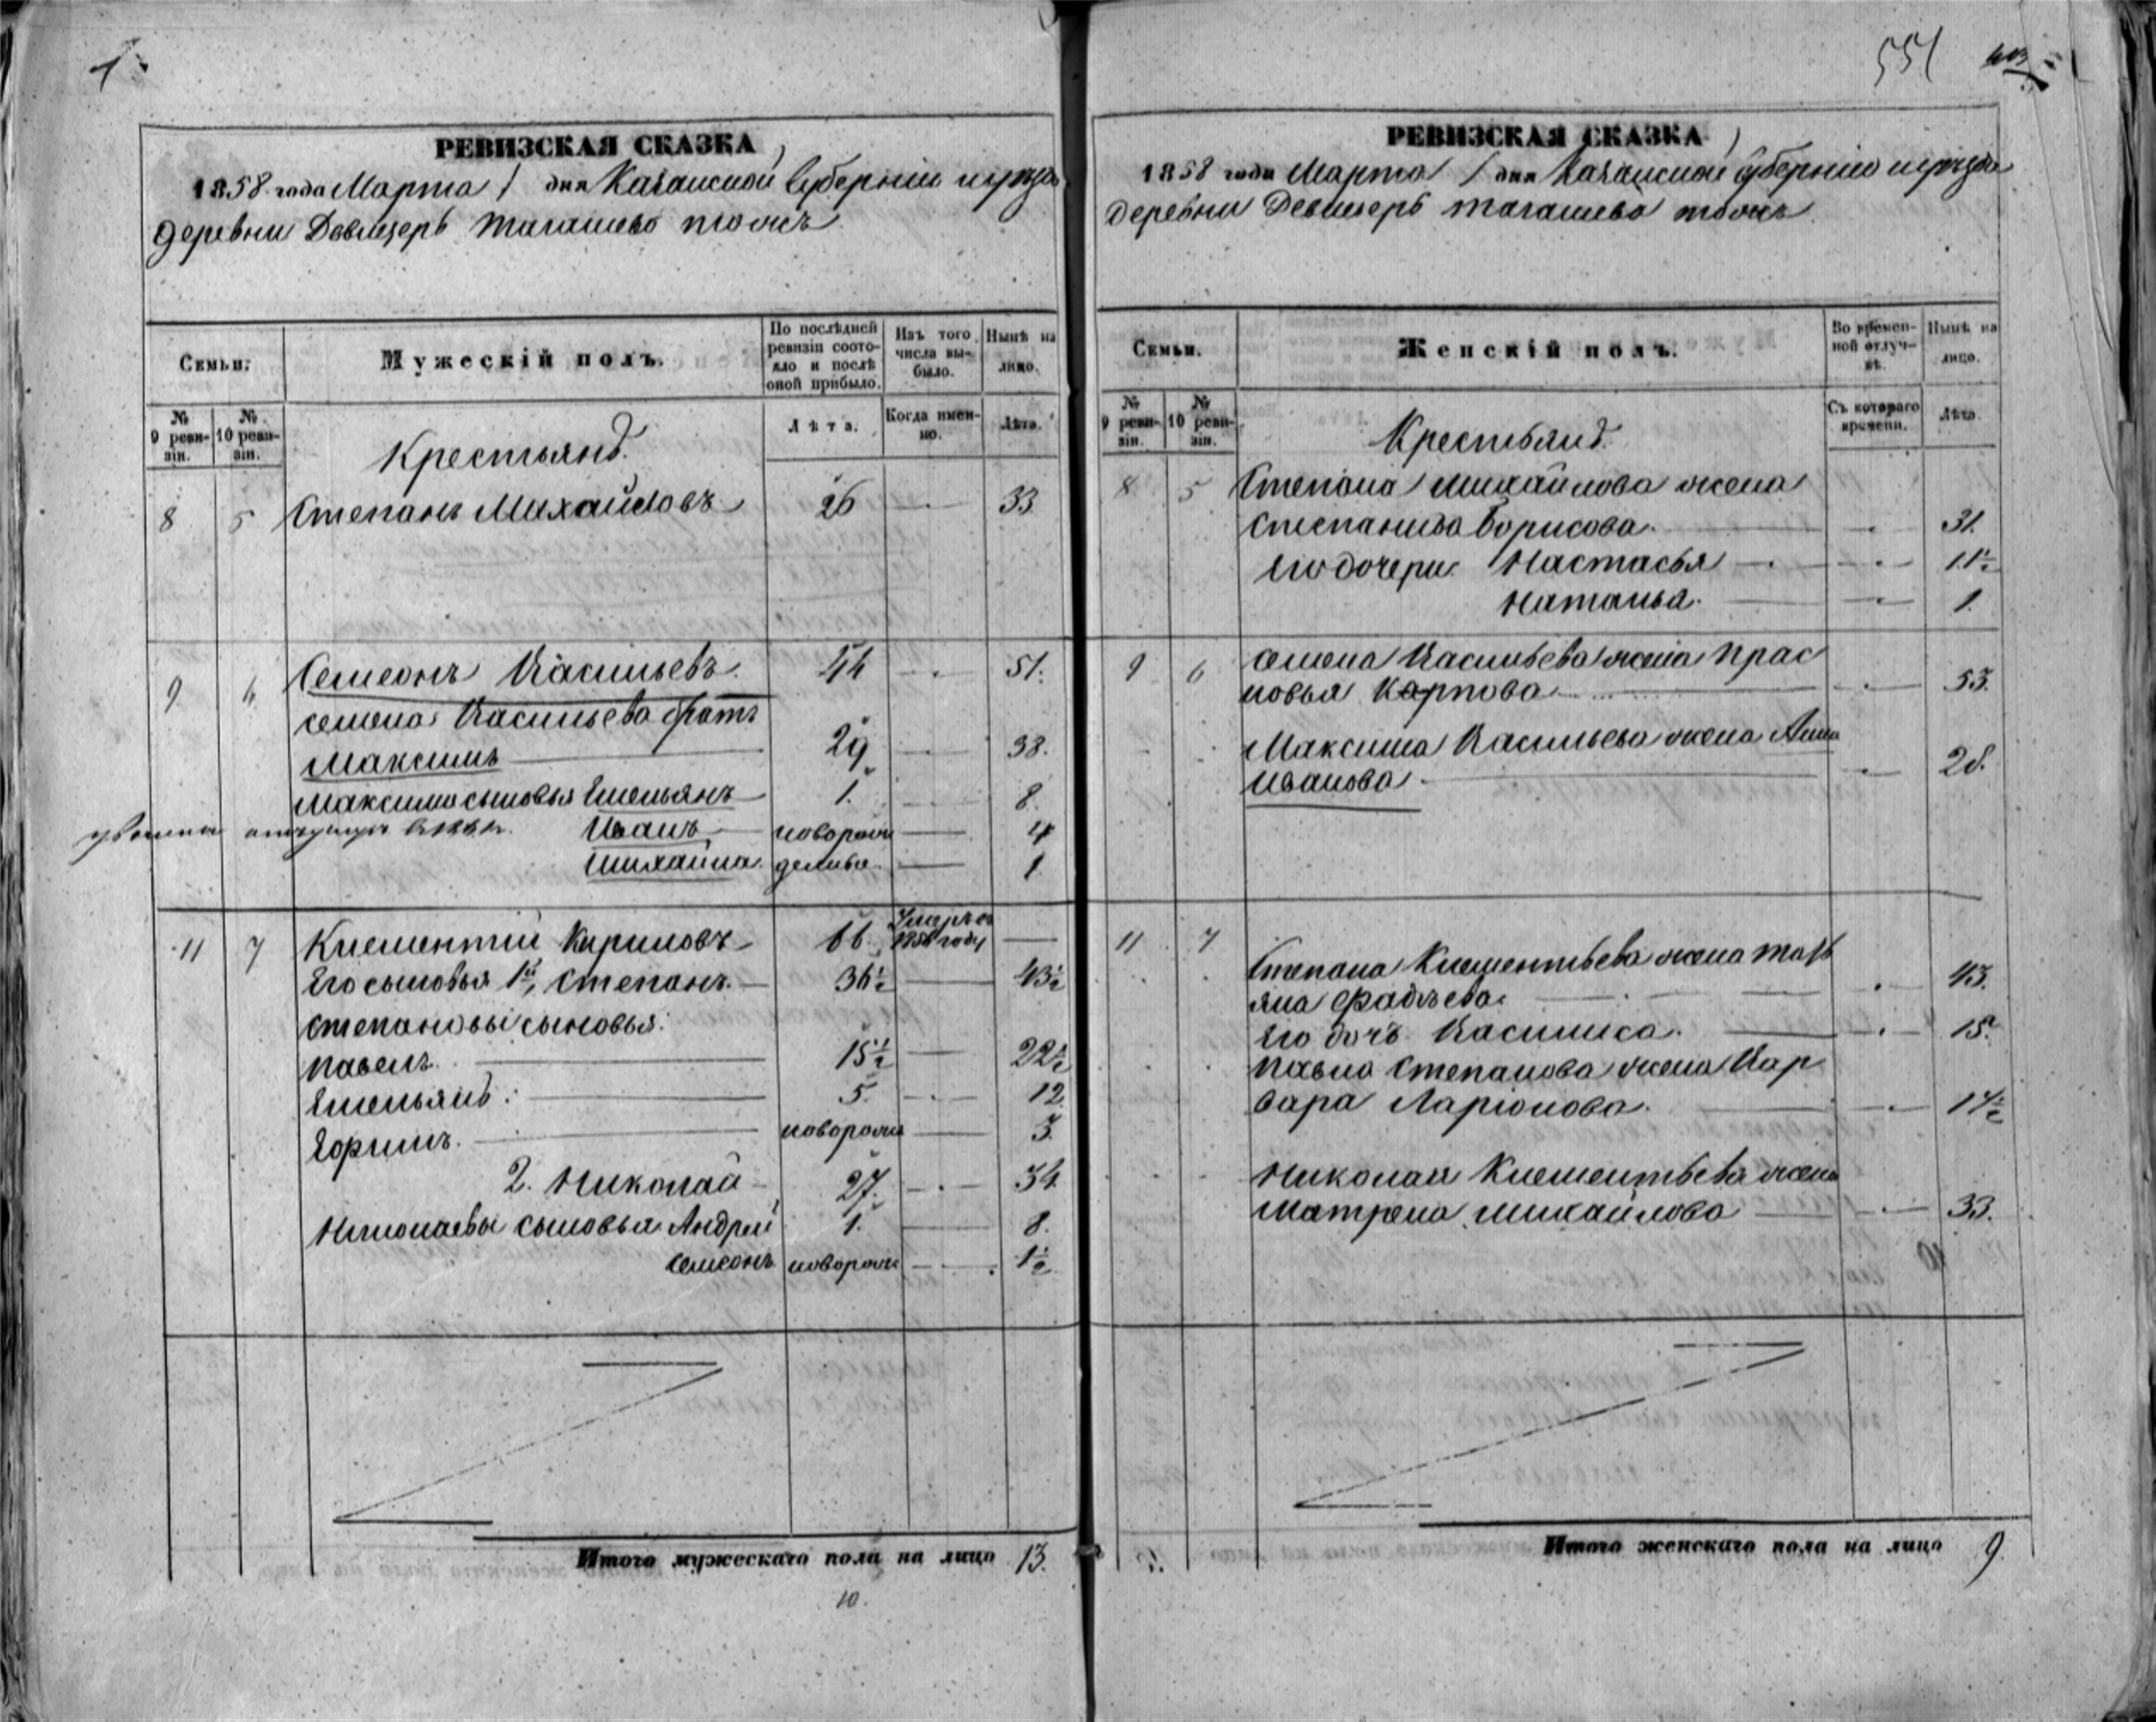 551
РЕВИЗСКАЯ СКАЗКА
1858 года Марта 1 дня Казанской Губерніи и уѣзда
деревни Девлизерь тожъ
Семьи.
Мужескій полъ.
По послѣдней ревизіи состояло и послѣ оной прибыло.
Изъ того числа выбыло.
Нынѣ на лицо.
№ 9 ревизіи.
№ 10 ревизіи.
Крестьянъ
Лѣта.
Когда именно.
Лѣта.
8 5 Степанъ Михайловъ 26 — 33.
9 6 Семеонъ Васильевъ. 44 — 51.
Семена Васильева братъ
Максимъ — 29 — 38.
Максима сыновья Емельянъ — 1. — 8.
Иванъ — новорож — 4
Михайла. денные. — 1
11 7 Климентій Кириловъ 66. Умеръ въ 1856 году —
Его сыновья 1й, Степанъ. — 36½ — 43½
Степановы сыновья:
Павелъ. — 15½ — 22½
Емельянъ. — 5. — 12.
Ефримъ. — новорож — 3.
2. Николай — 27. — 34.
Николаевы сыновья Андрей 1. — 8.
Семеонъ новорож — 1½
Итого мужескаго пола на лицо 13.
10.
РЕВИЗСКАЯ СКАЗКА
1858 года Марта 1 дня Казанской Губерніи и уѣзда
деревни Девлизерь тожъ
Семьи.
Женскій полъ.
Во временной отлучкѣ.
Нынѣ на лицо.
№ 9 ревизіи.
№ 10 ревизіи.
Крестьянъ.
Съ котораго времени.
Лѣта.
8 5 Степана Михайлова жена
Степанида Борисова. — 31.
Его дочери Настасья — 11½
Наталья. — 1.
9 6 Семена Васильева жена Прас
ковья Карпова — 53.
Максима Васильева жена Анна
Иванова. — 28.
11 7 Степана Климентьева жена Тать
яна Фадѣева. — 43.
Его дочь Василиса. — 15.
Павла Степанова жена Вар
вара Ларіонова. — 17½
Николая Климентьева жена
Матрена Михайлова — 33.
Итого женскаго пола на лицо 9.